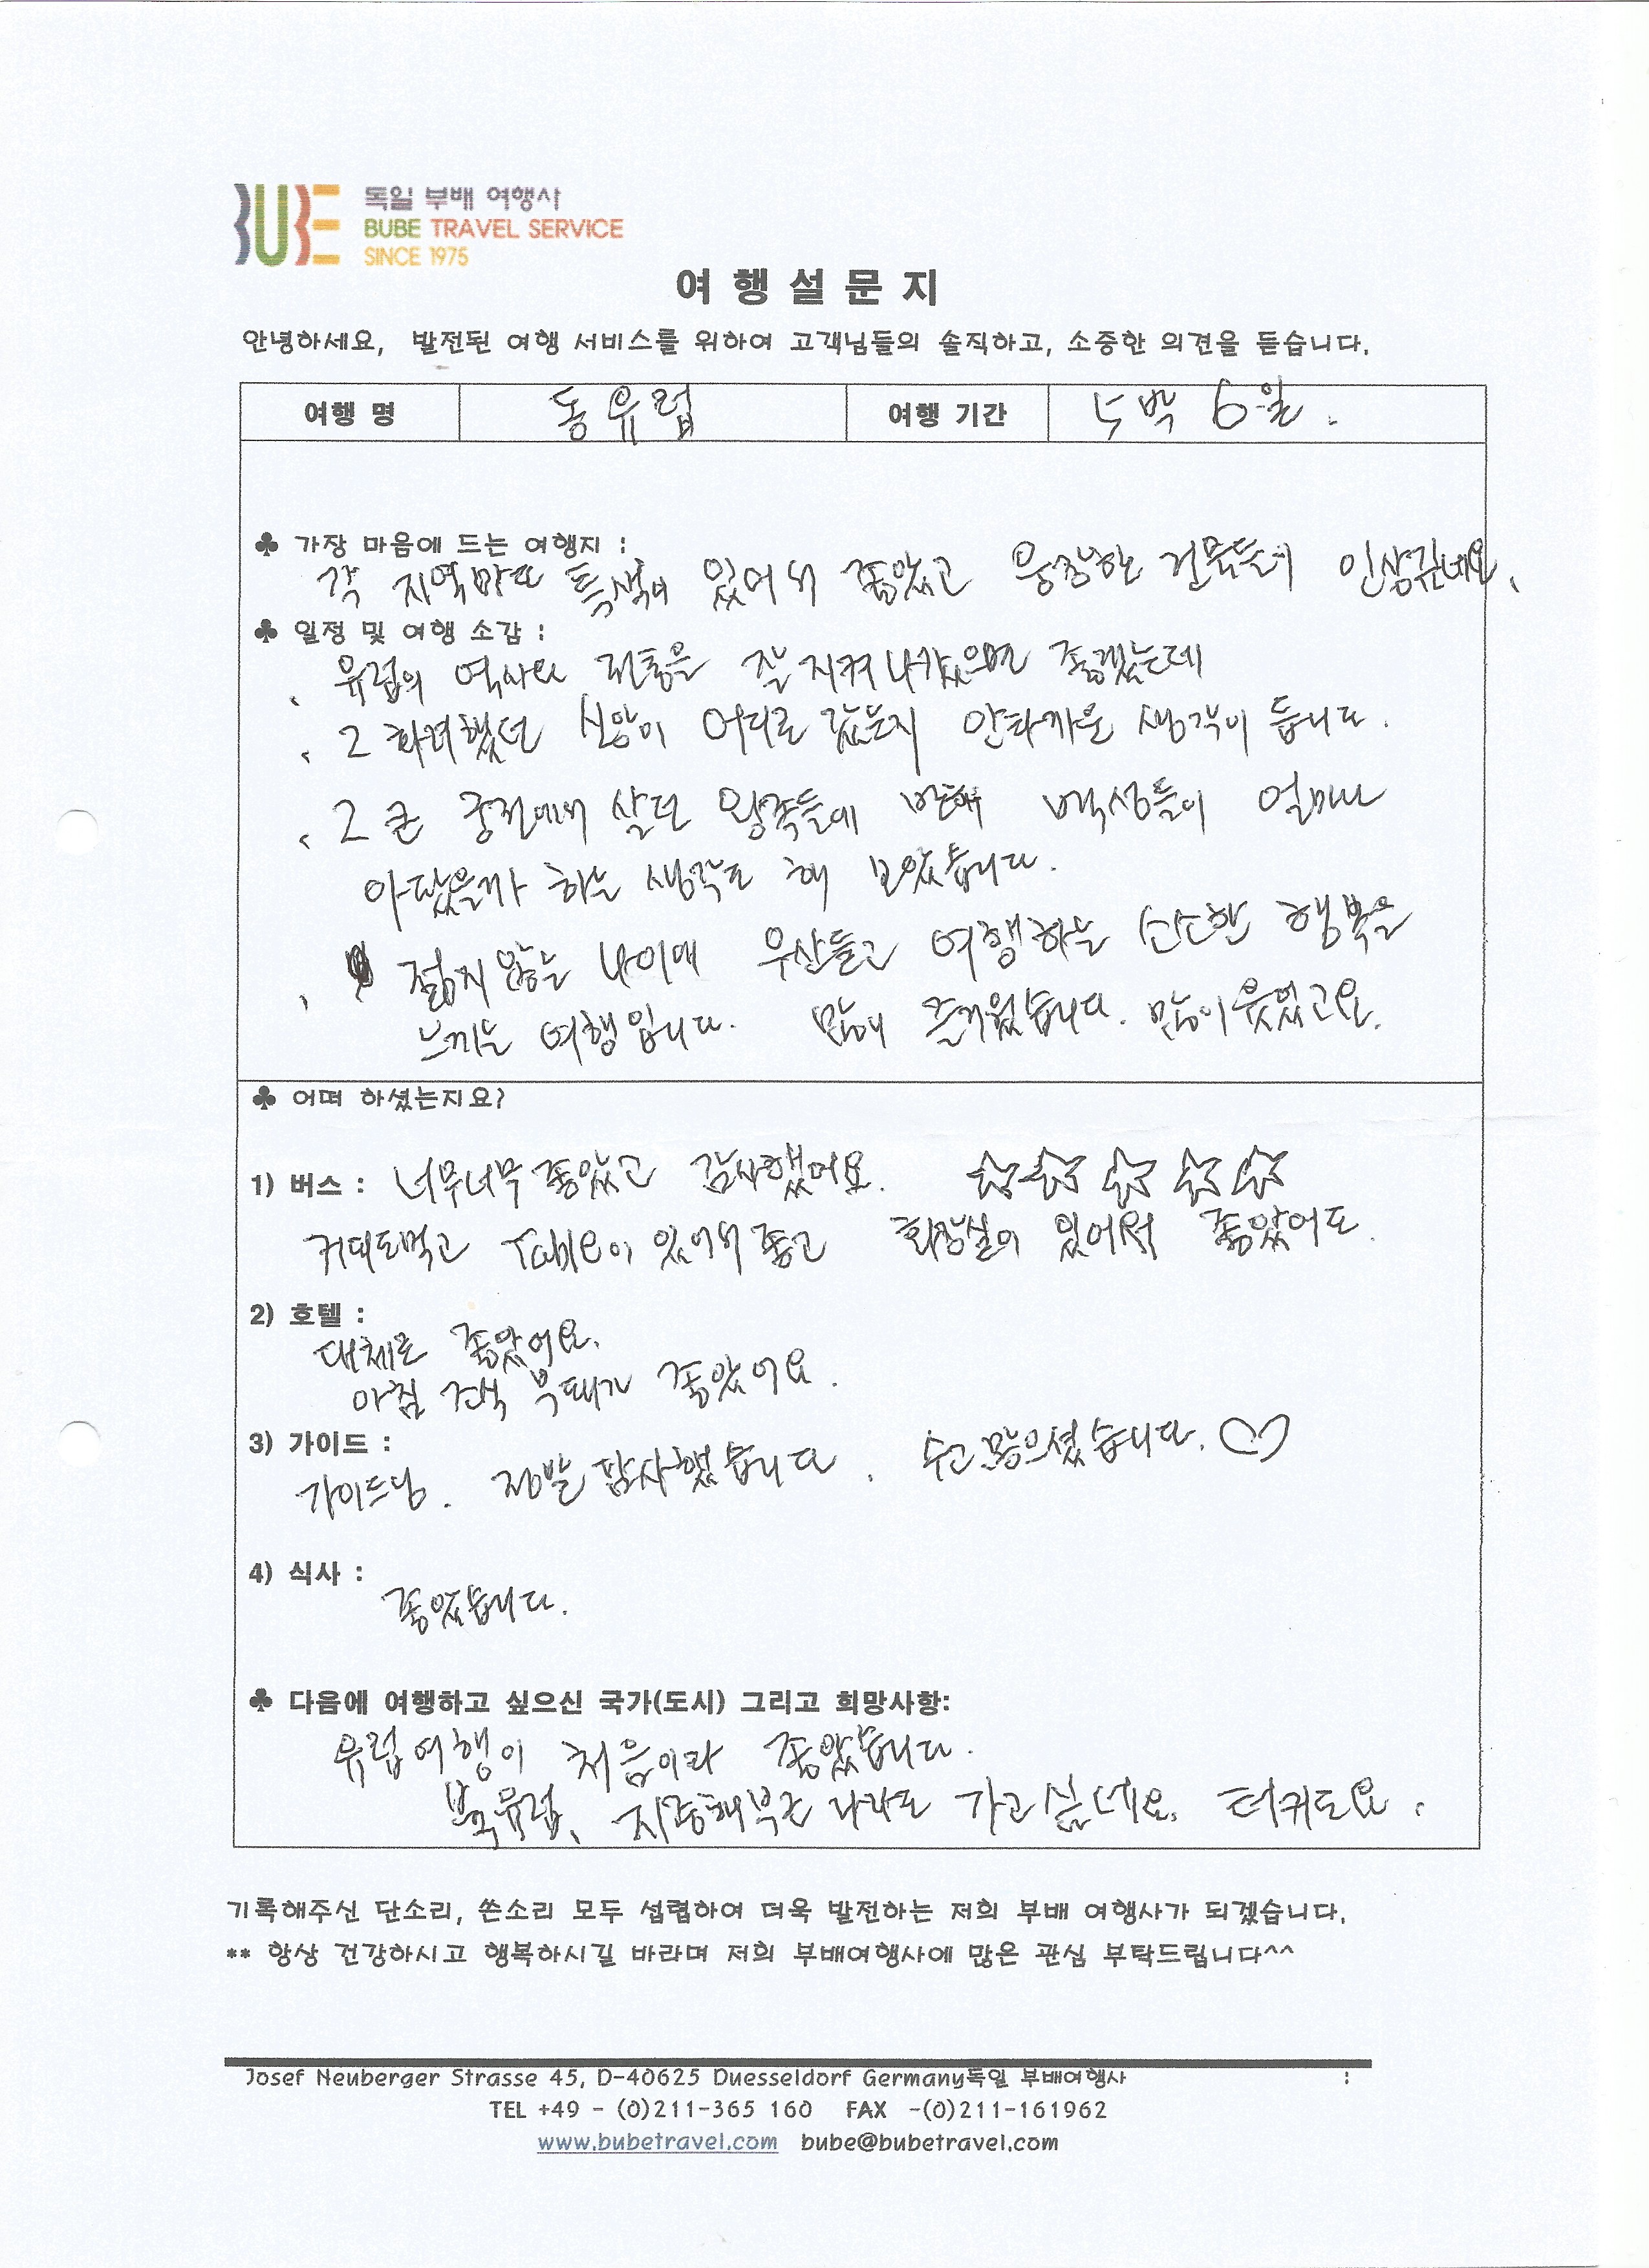 BUBE 독일 부배 여행사
BUBE TRAVEL SERVICE
SINCE 1975
여 행 설 문 지
안녕하세요, 발전된 여행 서비스를 위하여 고객님들의 솔직하고, 소중한 의견을 듣습니다.
여행 명 동유럽 여행 기간 5박 6일.
♣ 가장 마음에 드는 여행지 :
각 지역마다 특색이 있어서 좋았고 웅장한 건물들이
♣ 일정 및 여행 소감 :
유럽의 역사와 전통을 잘 지켜 나갔으면 좋겠는데
그 화려했던 신앙이 어디로 갔는지 안타까운 생각이 듭니다.
그 큰 궁전에서 살던 왕족들에 반해 백성들이 얼마나
하는 생각도 해 보았습니다.
젊지 않는 나이에 우산들고 여행하는 소소한 행복을
느끼는 여행입니다. 많이 즐거웠습니다. 많이 웃었고요.
♣ 어떠 하셨는지요?
1) 버스 : 너무너무 좋았고 감사했어요. ☆☆☆☆☆
커피도먹고 Table이 있어서 좋고 화장실이 있어서
2) 호텔 :
대체로 좋았어요.
아침 조식 부페가 좋았어요.
3) 가이드 :
가이드님. 정말 감사했습니다. 수고 많으셨습니다. ♡
4) 식사 :
좋았습니다.
♣ 다음에 여행하고 싶으신 국가(도시) 그리고 희망사항:
유럽여행이 처음이라 좋았습니다.
북유럽, 지중해부근 나라도 가고 싶네요. 터키도요.
기록해주신 단소리, 쓴소리 모두 섭렵하여 더욱 발전하는 저희 부배 여행사가 되겠습니다.
** 항상 건강하시고 행복하시길 바라며 저희 부배여행사에 많은 관심 부탁드립니다^^
Josef Neuberger Strasse 45, D-40625 Duesseldorf Germany독일 부배여행사 :
TEL +49 - (0)211-365 160 FAX -(0)211-161962
www.bubetravel.com bube@bubetravel.com